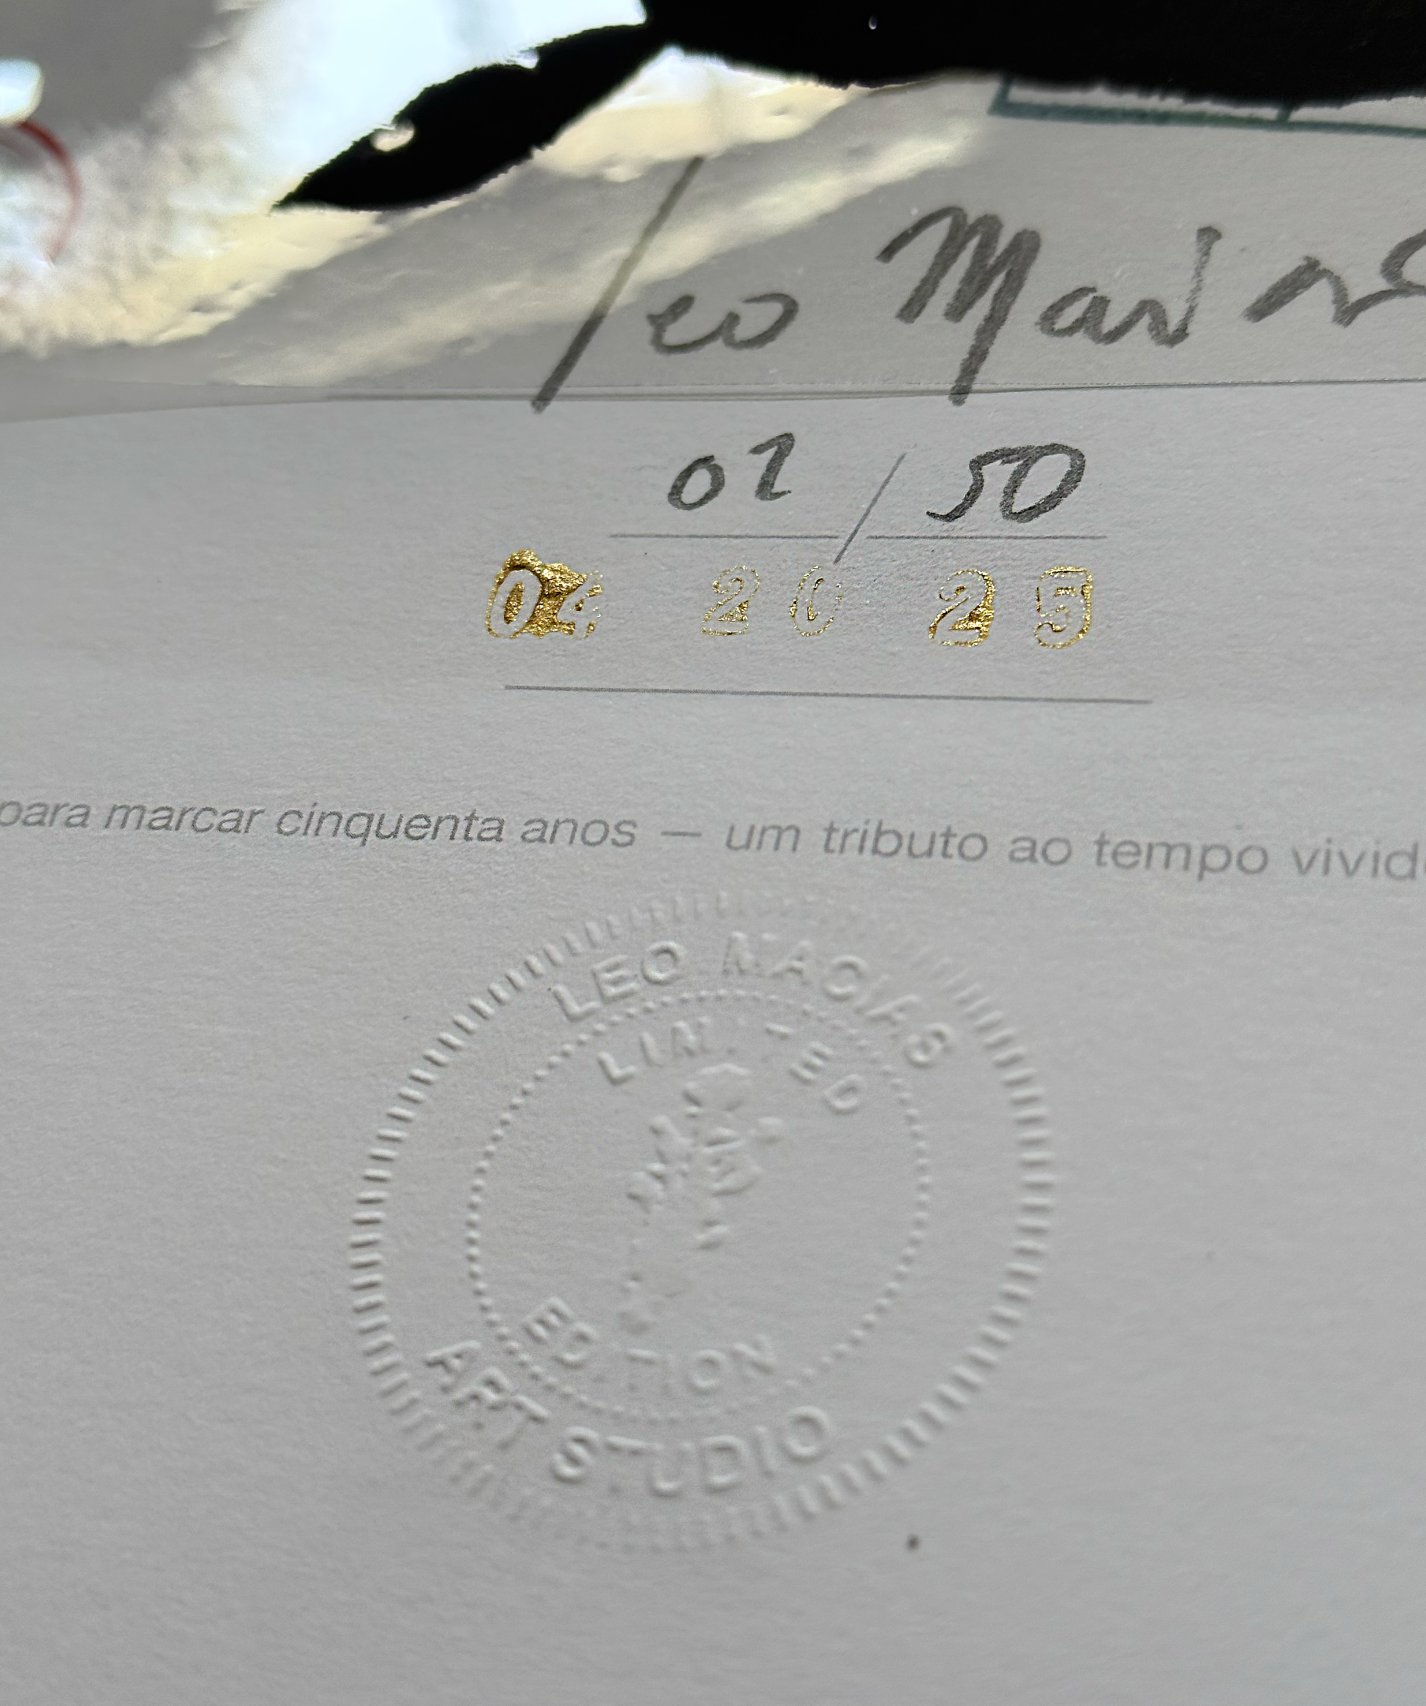 leo
02 / 50
04 20 25
para marcar cinquenta anos — um tributo ao tempo
LEO MACIAS
LIMITED
EDITION
ART STUDIO